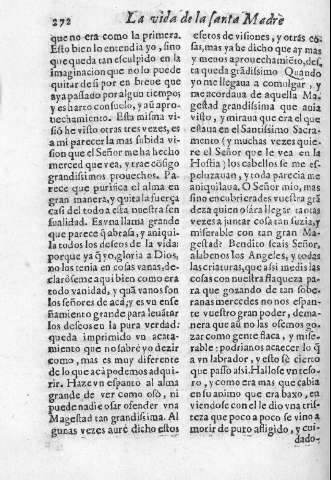 272 La vida de la santa Madre
que no era como la primera.
Esto bien lo entendia yo, sino
que queda tan esculpido en la
imaginacion que no lo puede
quitar de si por en breue que
aya passado por algun tiempo,
y es harto consuelo, y aũ apro-
uechamiento. Esta misma vi-
siõ he visto otras tres vezes, es
a mi parecer la mas subida vi-
sion que el Señor me ha hecho
merced que vea, y trae cõsigo
grandissimos prouechos. Pa-
rece que purifica el alma en
gran manera, y quita la fuerça
casi del todo a esta nuestra sen-
sualidad. Es vna llama grande
que parece q̃ abrasa, y aniqui-
la todos los deseos de la vida:
porque ya q̃ yo, gloria a Dios,
no los tenia en cosas vanas, de-
claróseme aqui bien como era
todo vanidad, y quã vanos son
los señores de acá, y es vn ense
ñamiento grande para leuãtar
los deseos en la pura verdad:
queda imprimido vn acata-
miento que no sabrè yo dezir
como, mas es muy diferente
de lo que acà podemos adqui-
rir. Haze vn espanto al alma
grande de ver como osò, ni
puede nadie osar ofender vna
Magestad tan grandissima. Al
gunas vezes aurè dicho estos
efetos de visiones, y otras co-
sas, mas ya he dicho que ay mas
y menos aprouechamiẽto, des-
ta queda grãdissimo. Quando
yo me llegaua a comulgar, y
me acordaua de aquella Ma-
gestad grandissima que auia
visto, y miraua que era el que
estaua en el Santissimo Sacra-
mento (y muchas vezes quie-
re el Señor que le vea en la
Hostia) los cabellos se me es-
peluzauan, y toda parecia me
aniquilaua. O Señor mio, mas
sino encubrierades vuestra grã
deza quien osàra llegar tantas
vezes a juntar cosa tan suzia, y
miserable con tan gran Ma-
gestad? Bendito seais Señor,
alabenos los Angeles, y todas
las criaturas, que assi medis las
cosas con nuestra flaqueza pa-
ra que gozando de tan sobe-
ranas mercedes no nos espan-
te vuestro gran poder, de ma-
nera que aũ no las osemos go-
zar como gente flaca, y mise-
rable: podrianos acaecer lo q̃
a vn labrador, y esto sè cierto
que passo assi. Hallose vn teso-
ro, y como era mas que cabia
en su animo que era baxo, en
viendose con el le dio vna tris-
teza que poco a poco se vino a
morir de puro afligido, y cui-
dado-